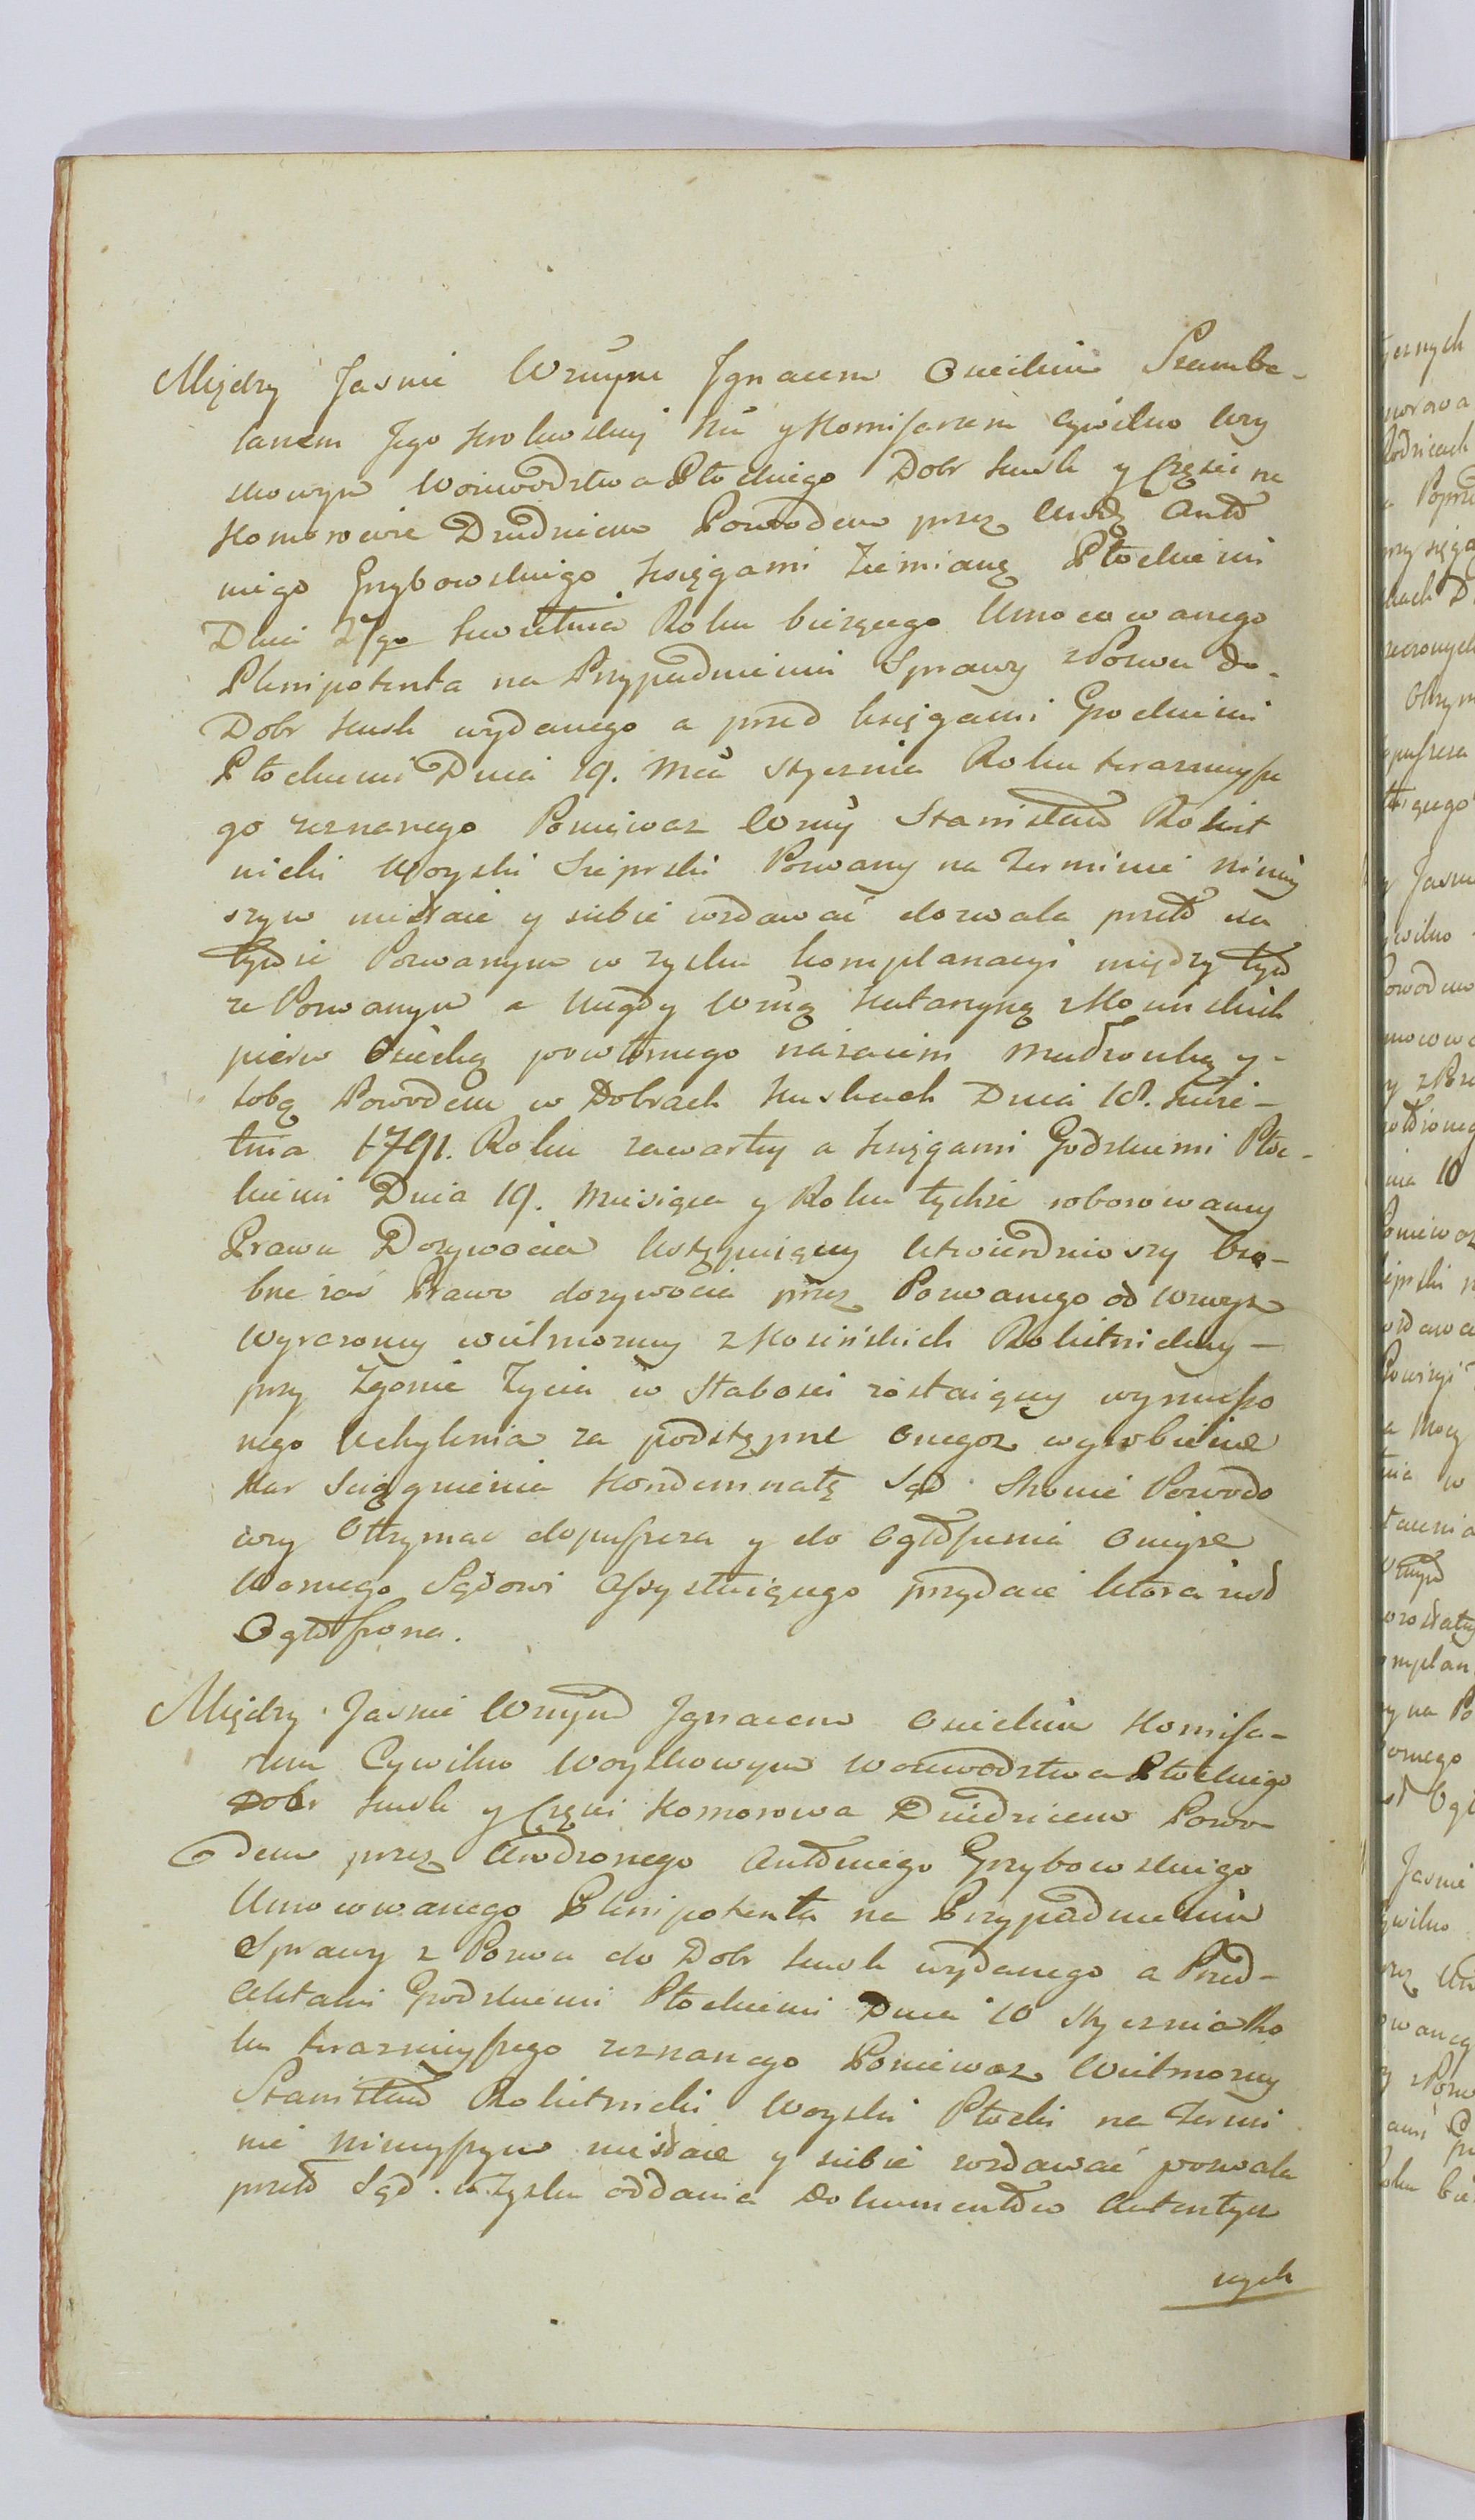 Między Jasnie Wznym Jgnacem Osieckim Szambe-
lanem Jego Krolewskiej Mci y Komisarzem Cywilno Woy
skowym Woiewodztwa Płockiego Dobr Kusk y Części na
Komorowie Dziedzicem Powodem przez Urodz Anto
niego Grzybowskiego Księgami Ziemianz Płockiemi
Dnia 27go Kwietnia Roku bieżącego Umocowanego
Plenipotenta na Przypadnieniu Sprawy z Pozwu do
Dobr Kusk wydanego a przed księgami Grodzkiemi
Płockiemi Dnia 19. Mca Stycznia Roku teraznieysze
go zeznanego Ponieważ Wzny Stanisław Rokit
nicki Woyski Sieprski Pozwany na Terminie niniey
szym niestaie y siebie wzdawać dozwala przeto na
tymże Pozwanym w zysku komplanacyi między tym
ze Pozwanym a niegdy Wzną Katarzyną z Kosinskich
pierw Osiecką powtornego na
tobą Powodem w Dobrach Kuskach Dnia 18. Kwie-
tnia 1791. Roku zawartey a księgami Grodzkiemi Płoc-
kiemi Dnia 19. Miesiąca y Roku tychże roborowaney
Prawa Dożywocia Ustępuiącey Utwierdziwszy Oso-
bne zaś Prawo dożywocia przez Pozwanego od wzwyż
wyrażoney wielmożney z Kosińskich Rokitnickiey -
przy Zgonie Życia w słabości zostaiącey wymuszo
nego Uchylenia za podstępne onegoż wyrobienie
Kar Sciągnienia Kondemnatę Sąd Stronie Powodo
wey Otrzymac dopuszcza y do Ogłoszenia Oneyże
Woznego Sądowi Assystuiącego przydaie która iest
Ogłoszona.
Między Jasnie Wznym Jgnacem Osieckim Komissa-
rzem Cywilno Woyskowym Woiewodztwa Płockiego
Dobr Kusk y Części Komorowa Dziedzicem Powo
dem przez Urodzonego Antoniego Grzybowskiego
Umocowanego Plenipotenta na Przypadnieniu
Sprawy z Pozwu do Dobr Kusk wydanego a Przed-
Aktami Grodzkiemi Płockiemi Dnia 10 Stycznia Ro
ku teraznieyszego zeznanego Ponieważ Wielmożny
Stanisław Rokitnicki Woyski Płocki na Termi
nie ninieyszym niestaie y siebie wzdawać pozwala
przeto Sąd w zysku oddania Dokumentow Autentycz
nych